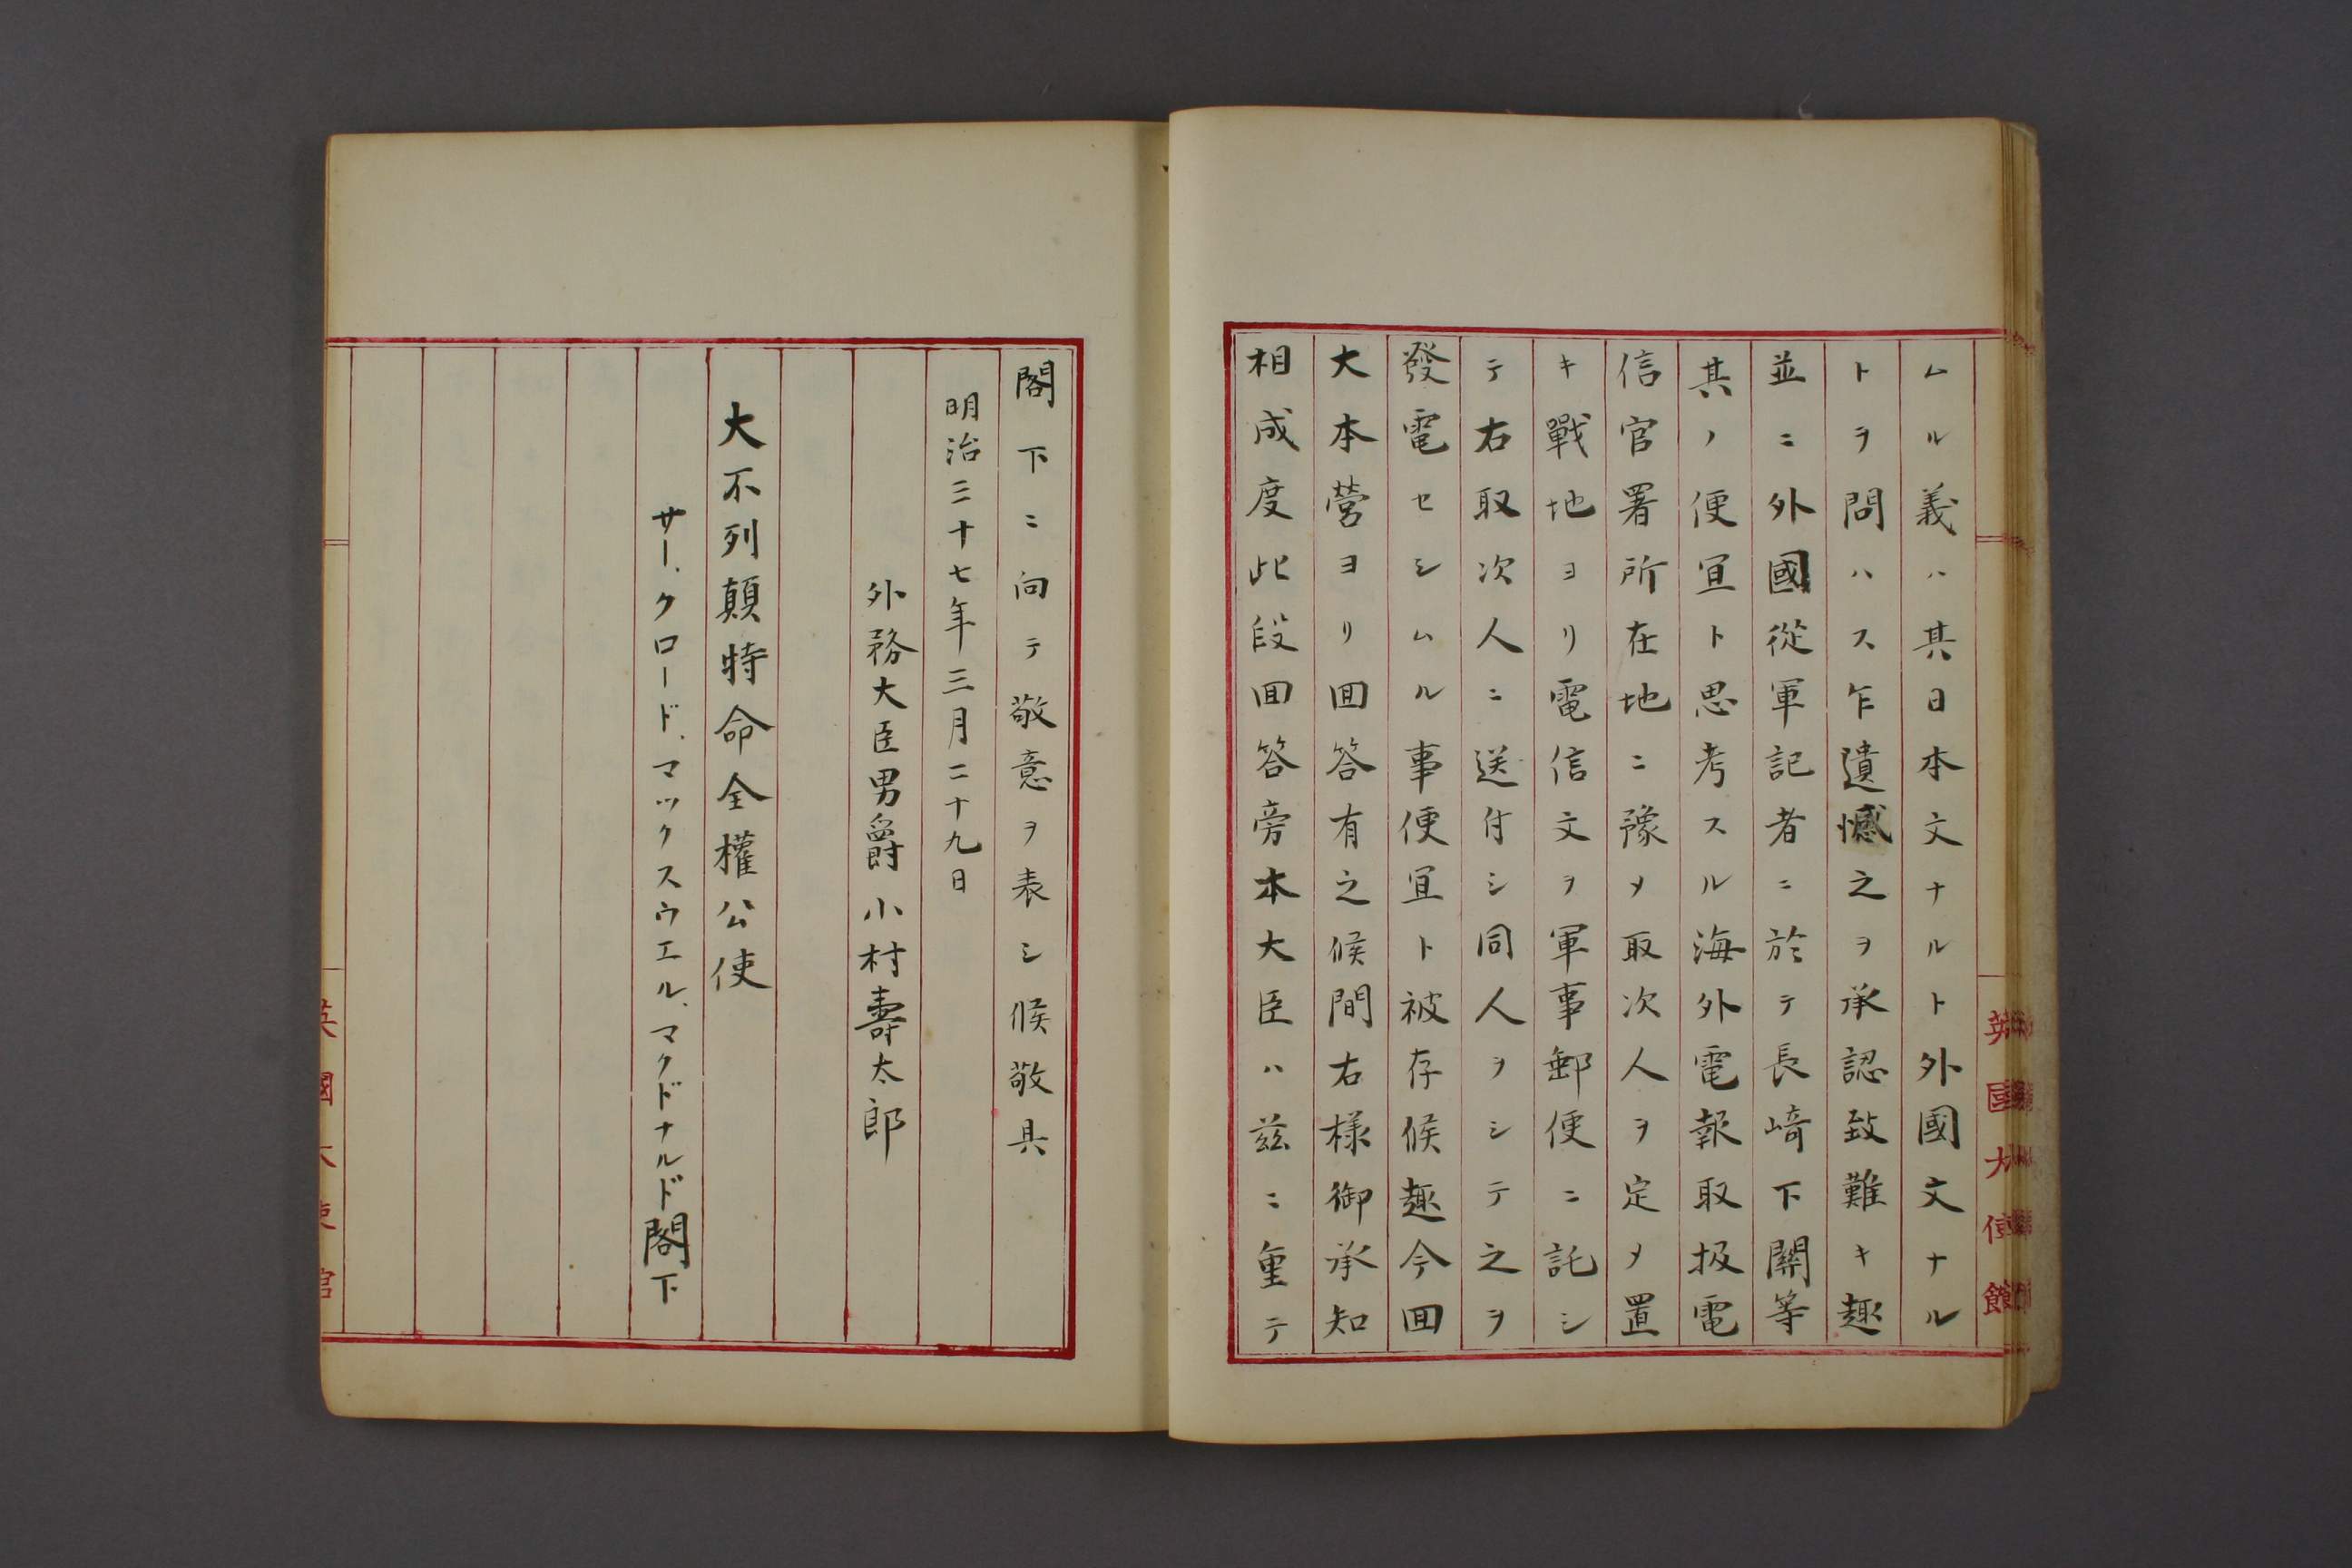 ムル義ハ其日本文ナルト外國文ナル
トヲ問ハス乍遺憾之ヲ承認致難キ趣
並ニ外國從軍記者ニ於テ長崎下關等
其ノ便宜ト思考スル海外電報取扱電
信官署所在地ニ豫メ取次人ヲ定メ置
キ戰地ヨリ電信文ヲ軍事郵便ニ託シ
テ右取次人ニ送付シ同人ヲシテ之ヲ
發電セシムル事便宜ト被存候趣今回
大本營ヨリ回答有之候間右様御承知
相成度此段回答旁本大臣ハ茲ニ重テ
英國大使館
閣下ニ向テ敬意ヲ表シ候敬具
明治三十七年三月二十九日
外務大臣男爵小村壽太郎
大不列顛特命全權公使
サー、クロード、マックスウエル、マクドナルド閣下
英國大使館